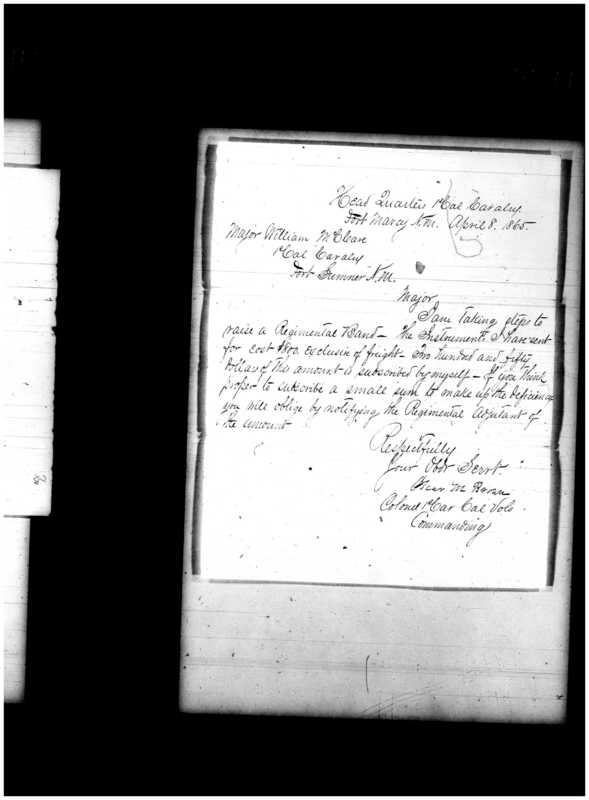 Head Quarters 1st Cal Cavalry.
Fort Marcy N.M. April 8. 1865
Major William McCleave
1st Cal Cavalry
Fort Sumner N.M.
Major
I am taking steps to
raise a Regimental Band - The Instruments I have sent
for cost $800 exclusive of freight - Two hundred and fifty
dollars of this amount is subscribed by myself - If you think
proper to subscribe a small sum to make up the deficiency
you will oblige by notifying the Regimental Adjutant of
the amount
Respectfully
Your Obdt Servt.
Oscar M Brown
Colonel 1st Cav Cal Vols.
Commanding